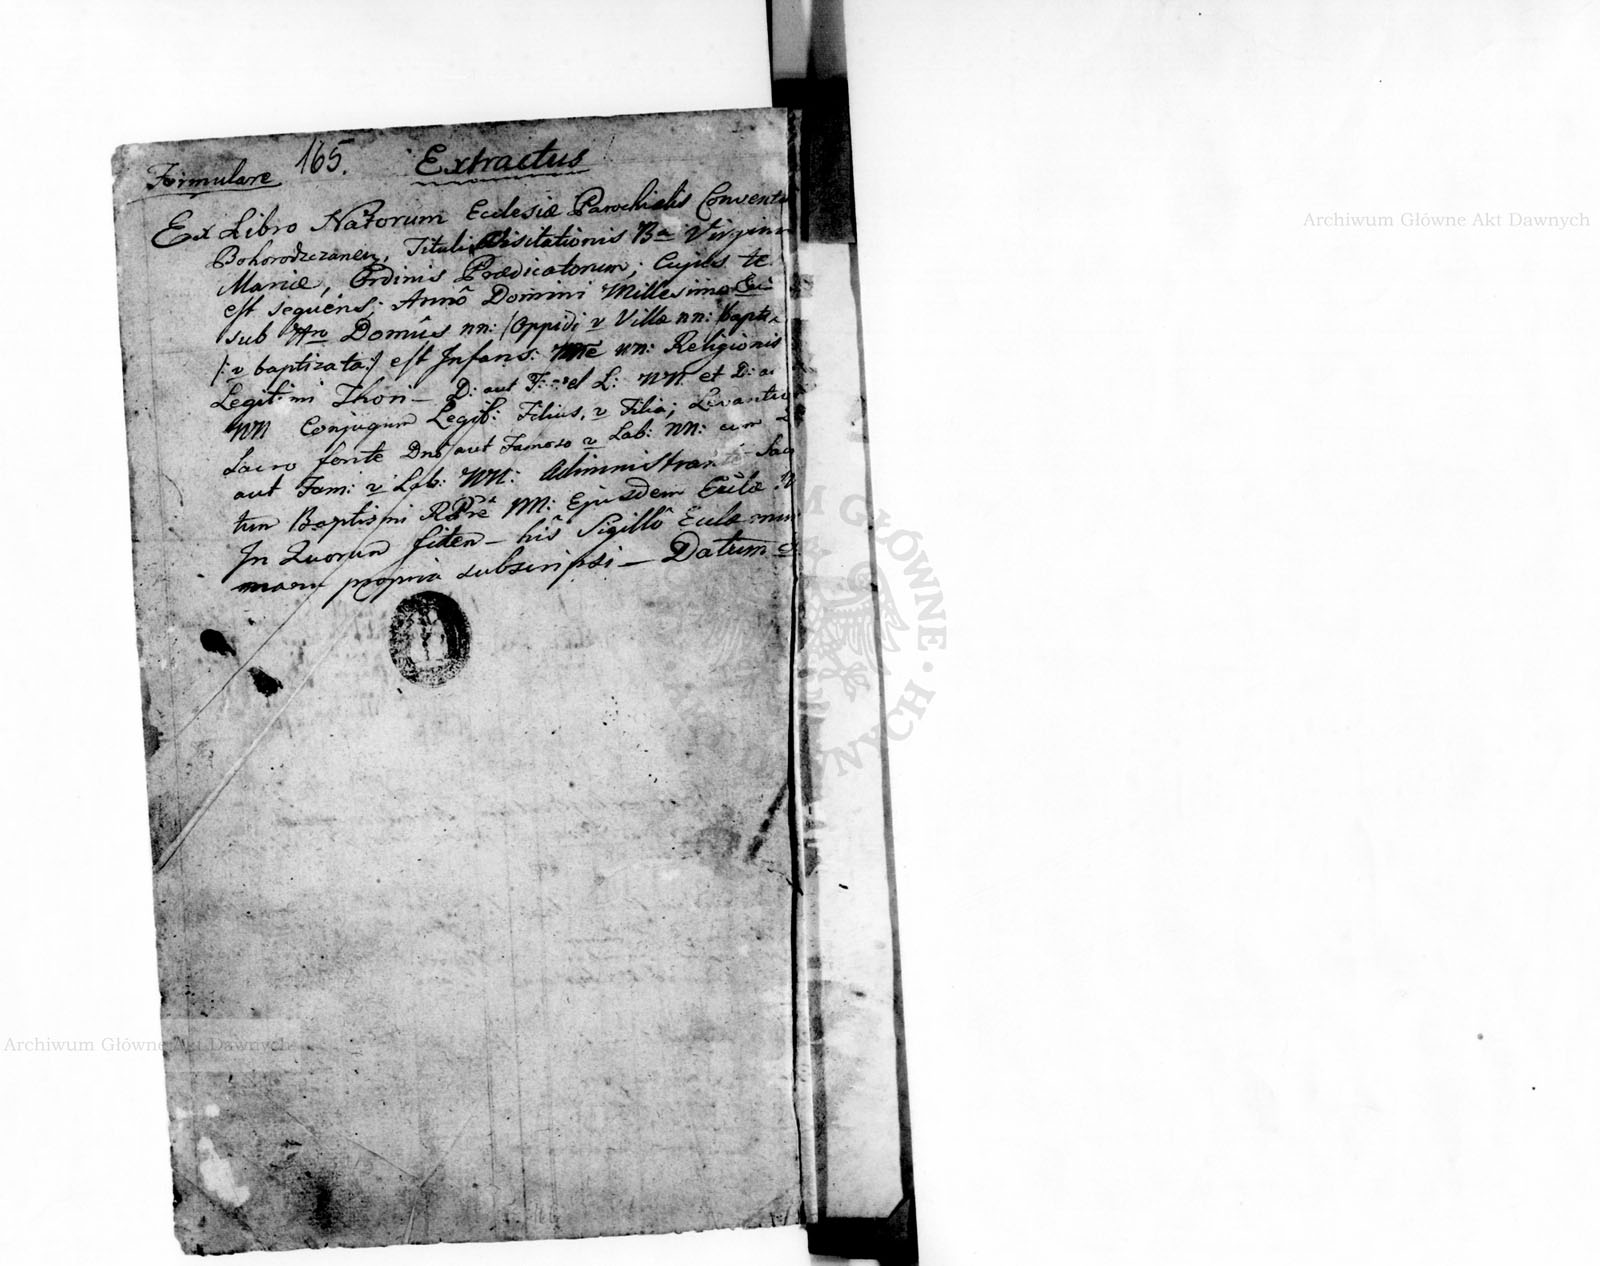 Formulare 165. Extractus
Ex Libro Natorum Ecclesiæ Parochialis Convent
Bohorodczanen, Tituli Visitationis Bæ Virginis
Mariæ, Ordinis Prædicatorum; Cujus te
est sequens; Annô Domini Millesimo
sub Nro Domûs nn: /Oppidi v Villæ nn: bapti
/: v baptizata:/ est Infans: nn: Religionis
Legitimi Thori – D: aut F: vel L: NN et D: a
NN Conjugum Legit: Filius, v Filia; Levantib
Sacro fonte Dno aut Famoso v Lab: NN: cum
aut Fam: v Lab: NN: Administrante Sac
tum Baptismi NN: Ejusdem Ecclæ
In Quorum fidem – his Sigillô Eccla
manu propria subscripsi – Datum
Archiwum Główne Akt Dawnych
M GŁÓWNE · AKT DAWNYCH ·
Archiwum Główne Akt Dawnych